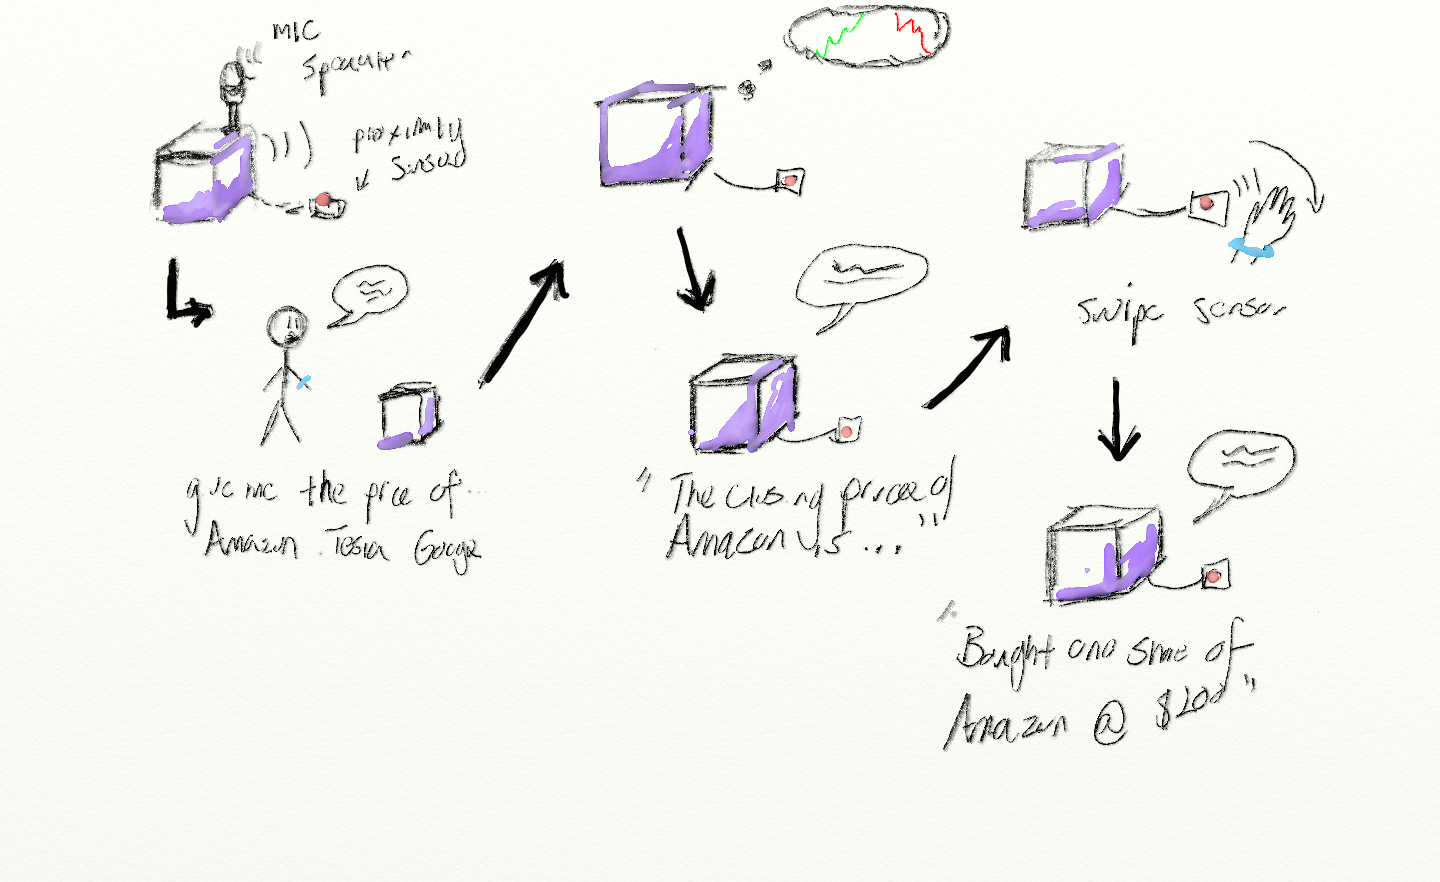 MIC
Speaker
proximity
sensor
give me the price of...
Amazon. Tesla Google
"The closing price of
Amazon is..."
swipe sensor
"Bought one share of
Amazon @ $200"